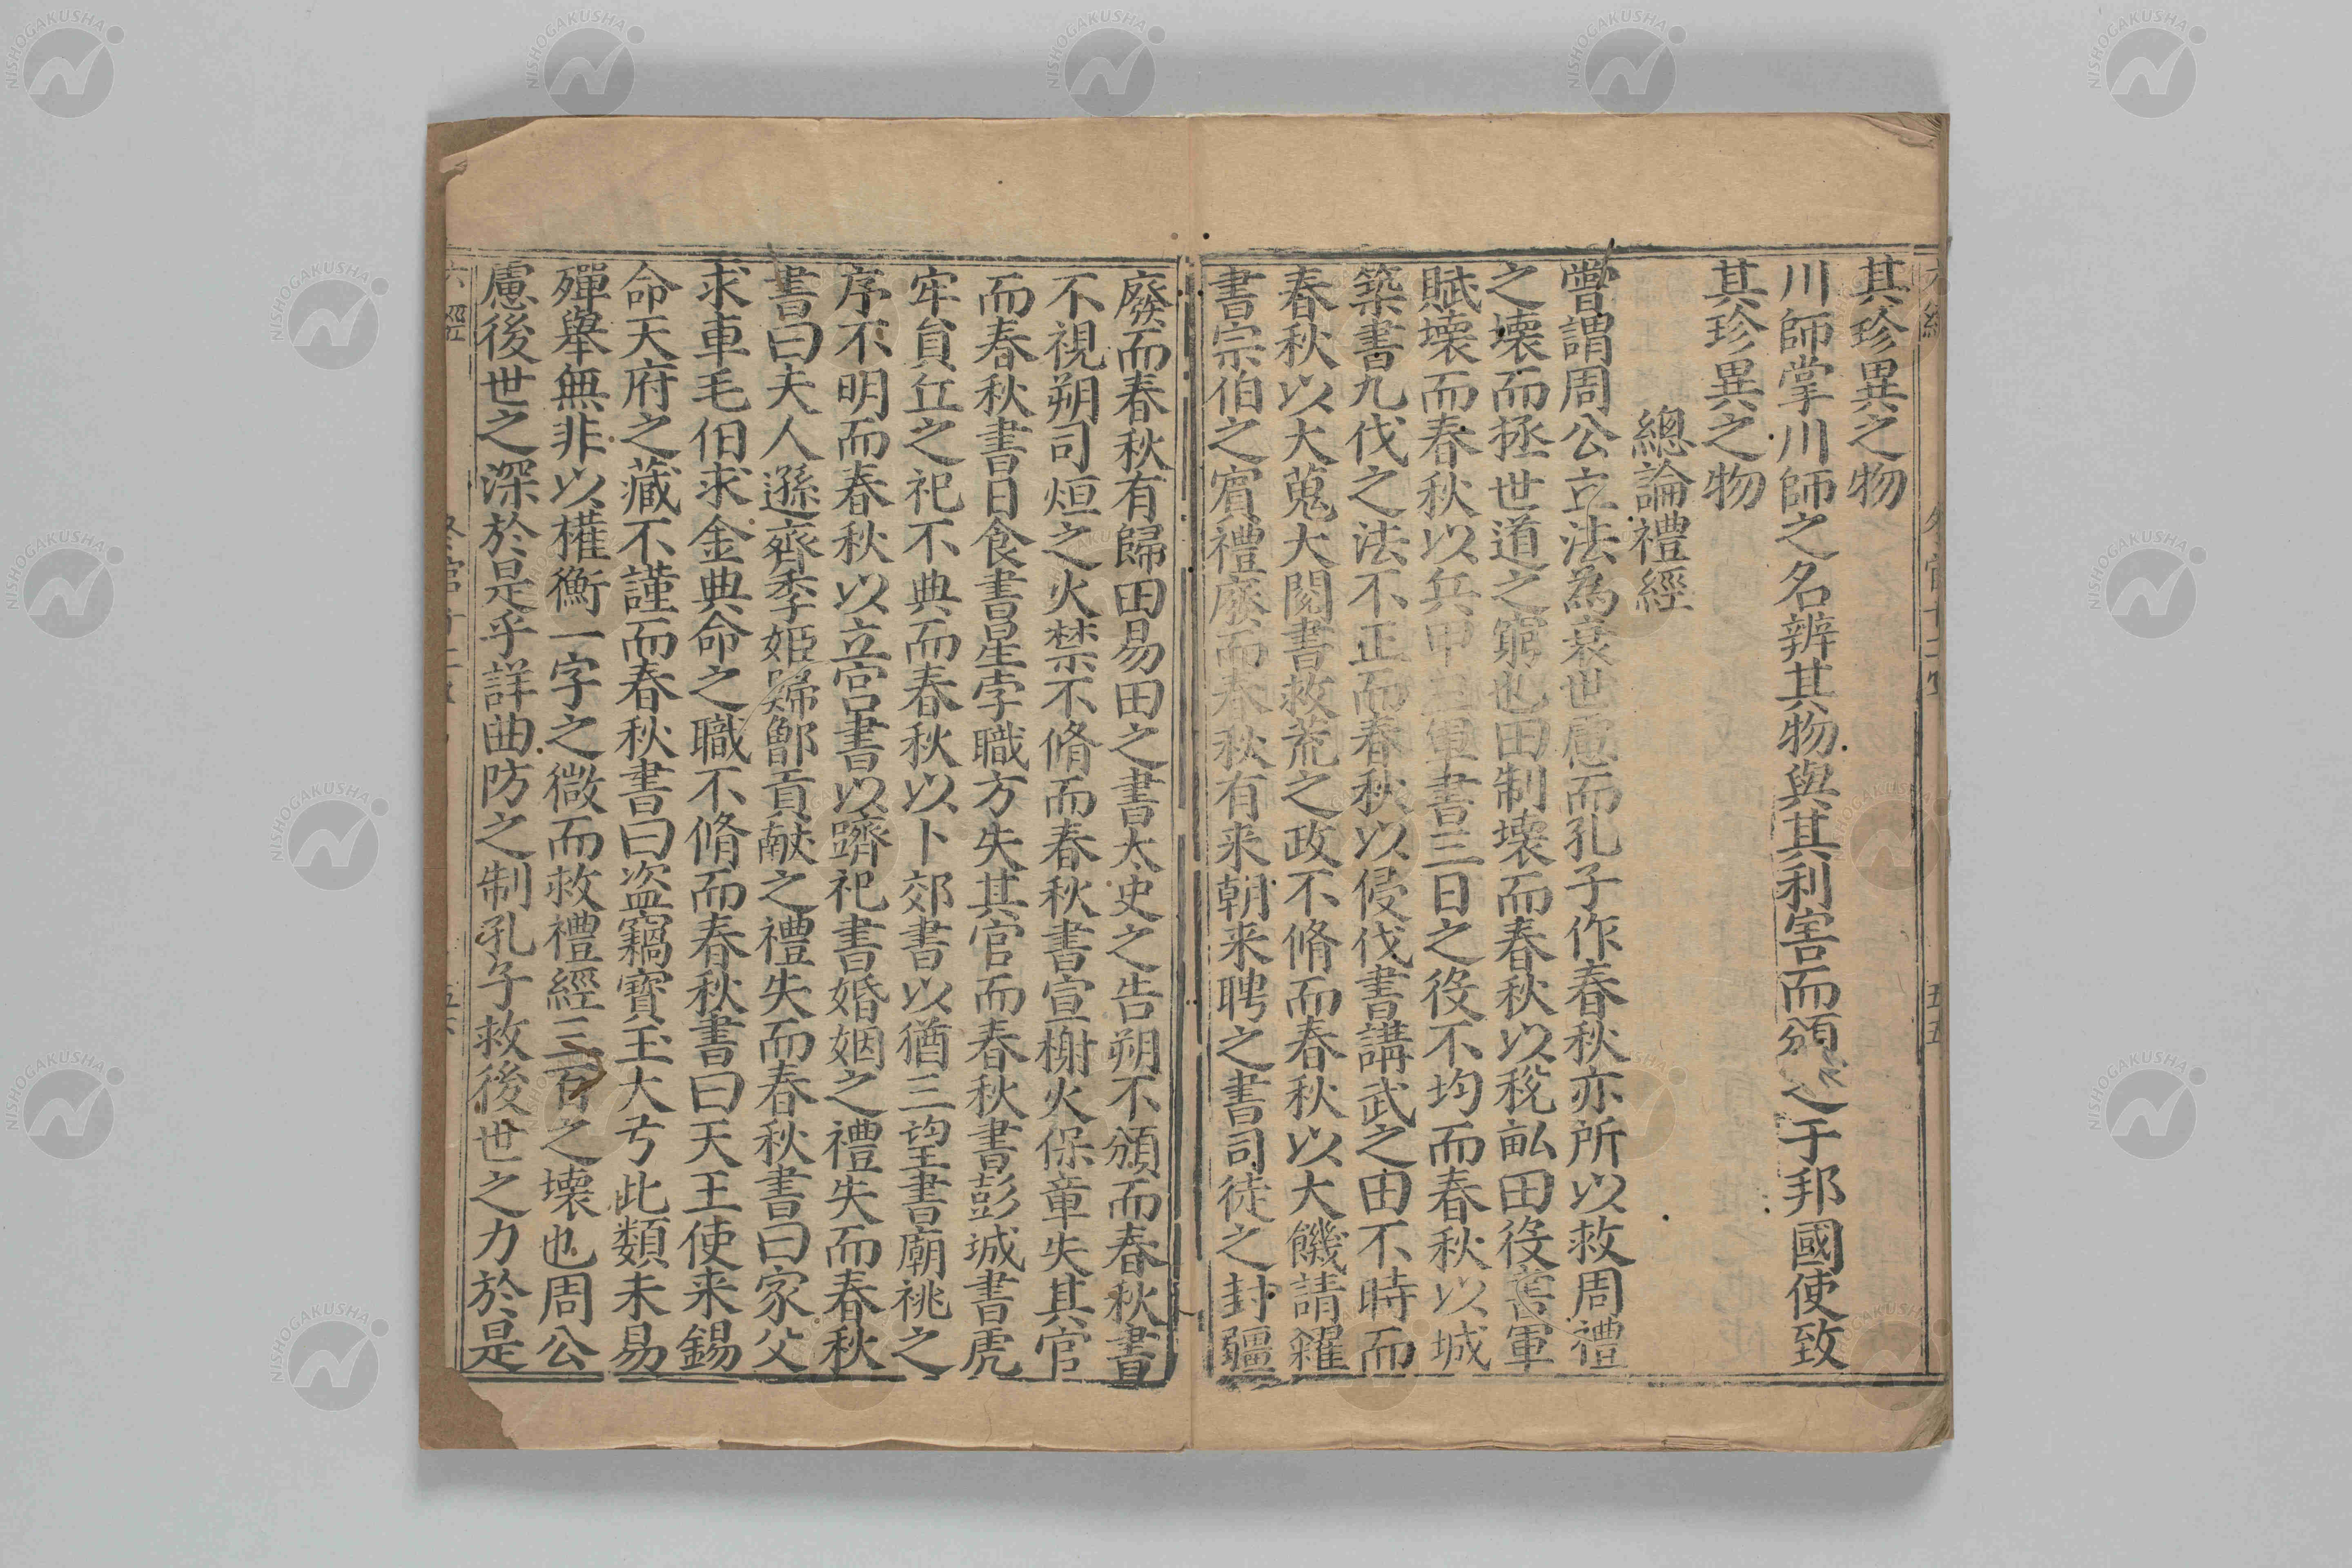 其珍異之物
川師掌川師之名辨其物與其利害而頒之于邦國使致
其珍異之物
總論禮經
嘗謂周公立法為衰世慮而孔子作春秋亦所以救周禮
之壞而拯世道之窮也田制壞而春秋以稅畝田役書軍
賦壞而春秋以兵甲三軍書三日之役不均而春秋以城
築書九伐之法不正而春秋以侵伐書講武之田不時而
春秋以大蒐大閱書救荒之政不脩而春秋以大饑請糴
書宗伯之賔禮廢而春秋有来朝来聘之書司徒之封疆
廢而春秋有歸田易田之書太史之告朔不頒而春秋書
不視朔司烜之火禁不脩而春秋書宣榭火保章失其官
而春秋書日食書星孛職方失其官而春秋書彭城書虎
牢貟丘之祀不典而春秋以卜郊書以猶三望書廟祧之
序不明而春秋以立宫書以躋祀書婚姻之禮失而春秋
書曰夫人遜齊季姬歸鄫貢献之禮失而春秋書曰家父
求車毛伯求金典命之職不脩而春秋書曰天王使来錫
命天府之藏不謹而春秋書曰盗竊寶玉大弓此類未易
殫舉無非以權衡一字之微而救禮經三百之壞也周公
慮後世之深於是乎詳曲防之制孔子救後世之力於是
六經
NISHOGAKUSHA